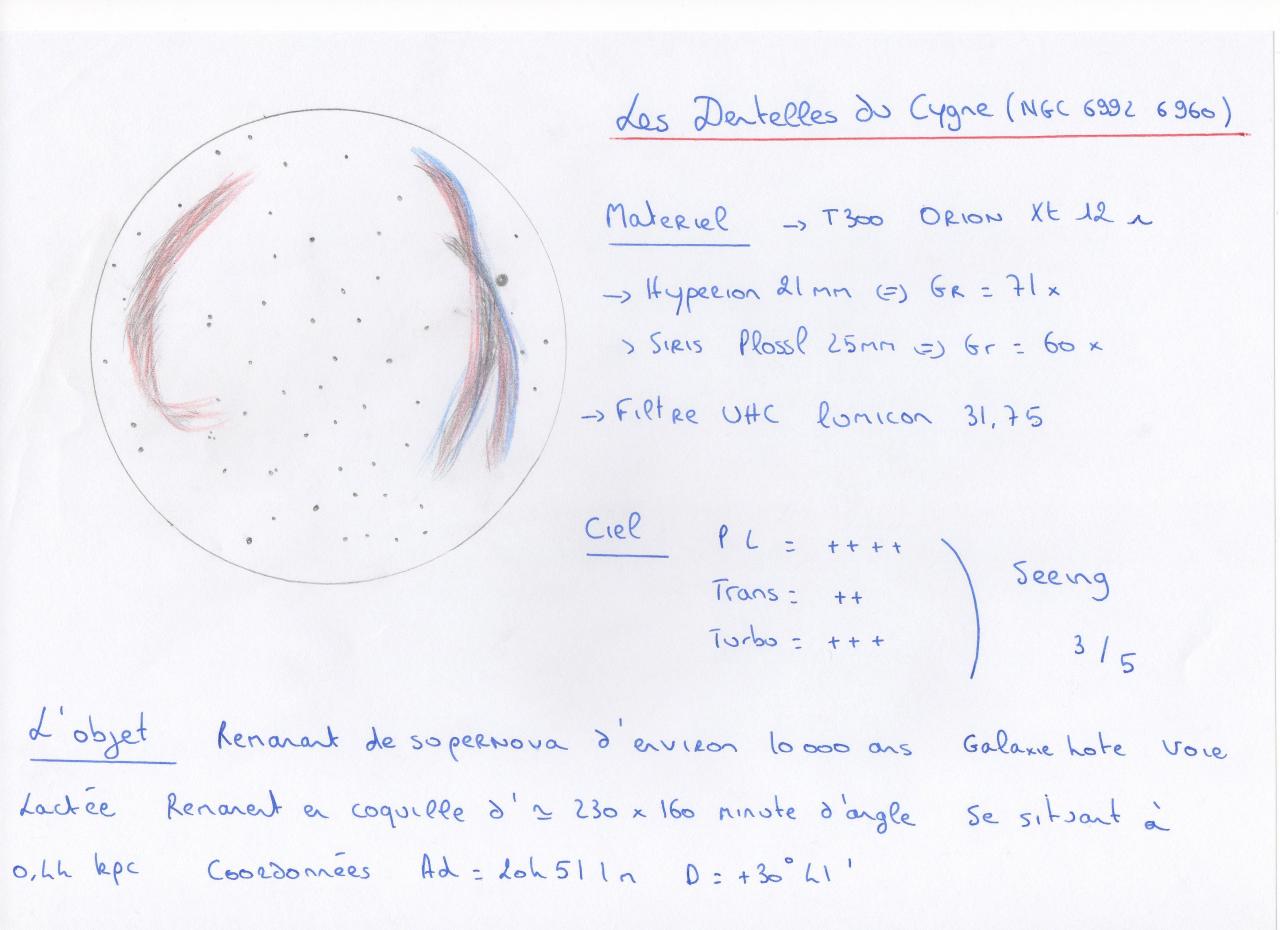 Les Dentelles du Cygne (NGC 6992 6960)
Materiel → T300 ORION Xt 12 i
→ Hyperion 21 mm <=> Gr = 71 x
> SIRIS Plossl 25mm => Gr = 60 x
→ Filtre UHC lumicon 31,75
Ciel
P L = ++++
Trans = ++
Turbo = +++
Seeing
3/5
L'objet Remanant de supernova d'environ 10 000 ans Galaxie hote Voie
Lactée Remanent en coquille d' ≃ 230 x 160 minute d'angle Se situant à
0,44 kpc Coordonnées Ad = 20h 51 D = +30° 41'